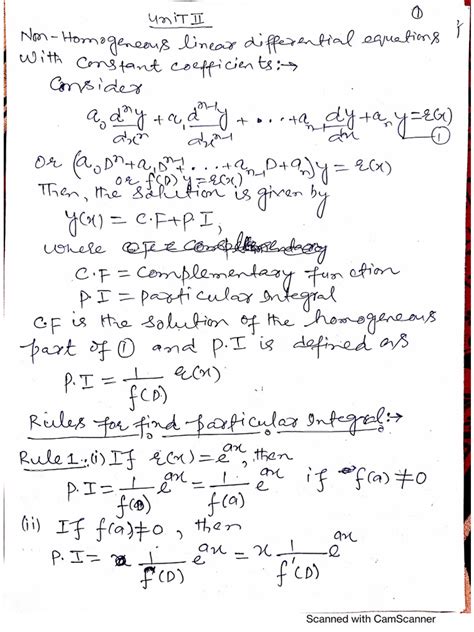 UNIT II
①
Non-Homogeneous linear differential equations
With Constant coefficients:→
Consider
a₀ dⁿy/dxⁿ + a₁ dⁿ⁻¹y/dxⁿ⁻¹ + ... + aₙ₋₁ dy/dx + aₙ y = r(x) ①
Or (a₀Dⁿ + a₁Dⁿ⁻¹ + ... + aₙ₋₁D + aₙ)y = r(x)
or f(D) y = r(x)
Then, the solution is given by
y(x) = C.F + P.I,
where
C.F = Complementary function
P.I = Particular Integral
CF is the solution of the homogeneous
part of ① and P.I is defined as
P.I = 1/f(D) r(x)
Rules for find particular Integral:→
Rule 1:(i) If r(x) = e^ax, then
P.I = 1/f(D) e^ax = 1/f(a) e^ax if f(a) ≠ 0
(ii) If f(a) ≠ 0, then
P.I = x 1/f'(D) e^ax = x 1/f'(D) e^ax
Scanned with CamScanner